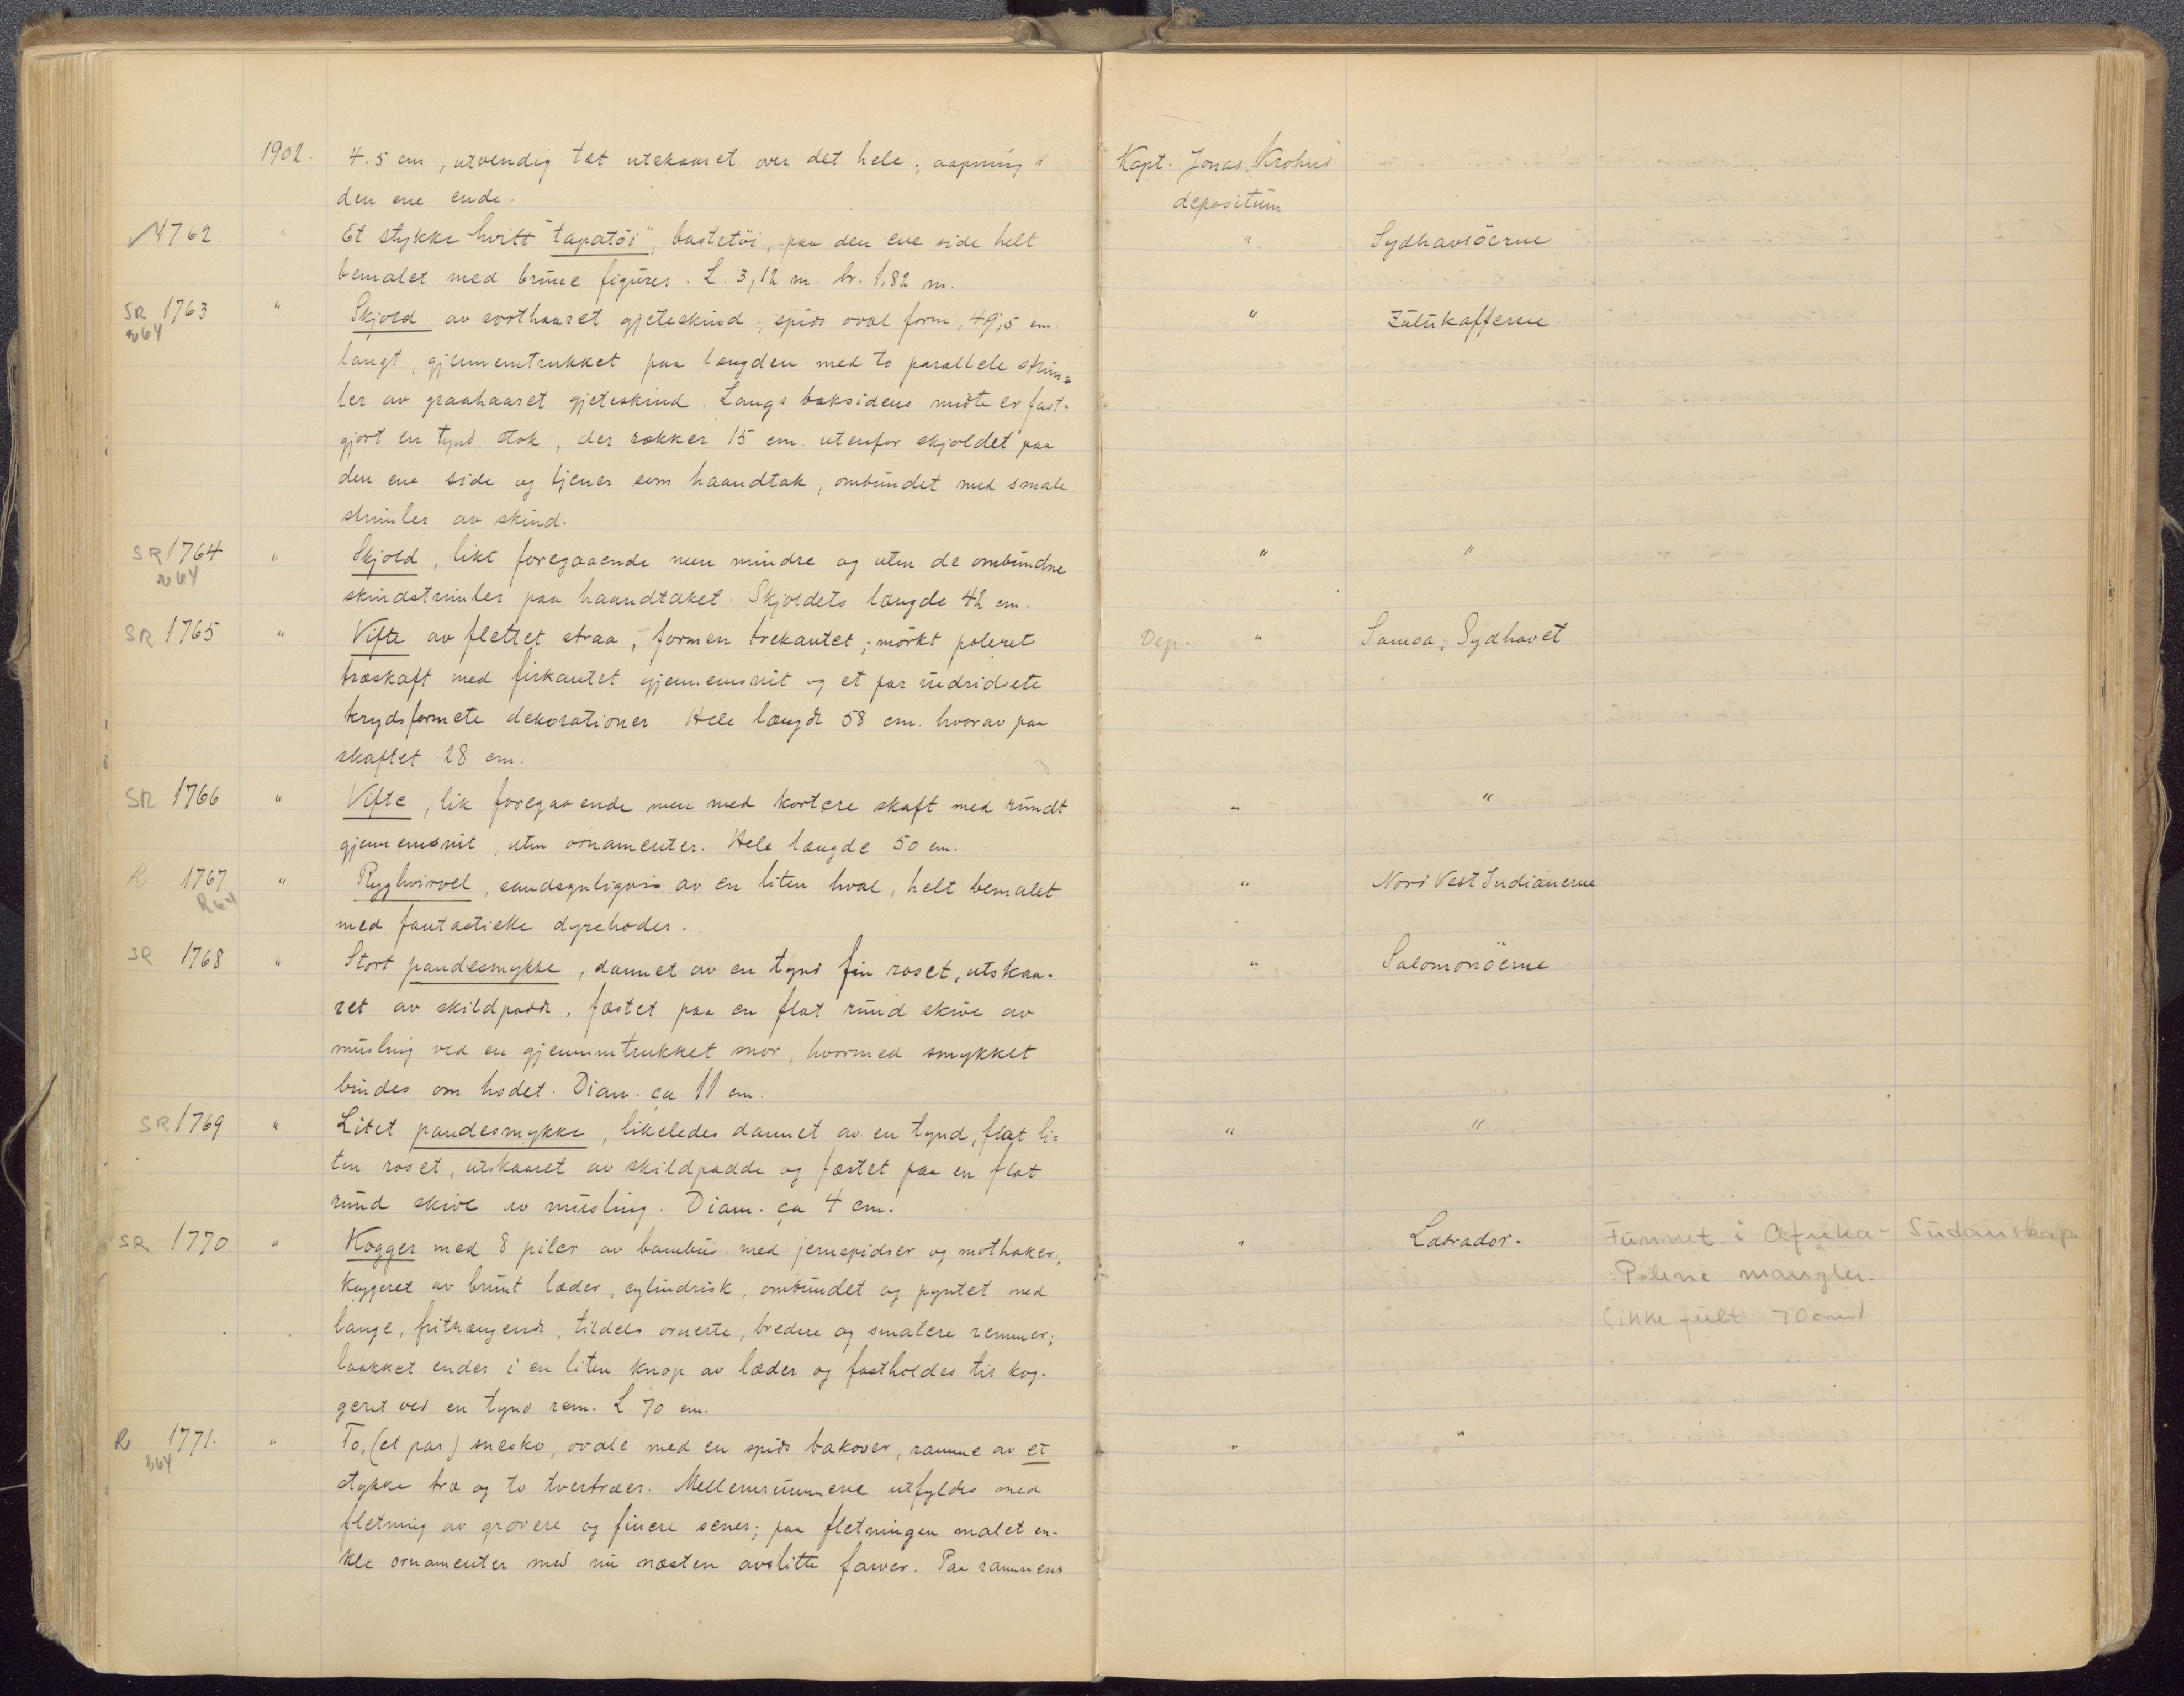 1902. 4.5 cm., utvendig tæt utskaaret over det hele; aapning i Kapt. Jonas Krohns
den ene ende. depositum
1762 " Et stykke hvitt "tapatöi", bastetöi, paa den ene side helt " Sydhavsöerne
bemalet med brune figurer. L. 3,12 m. br. 1,82 m.
SR 1763 " Skjold av sorthaaret gjeteskind, spids oval form, 49,5 cm " Zulukafferne
r64 langt, gjennemtrukket paa længden med to parallele strim=
ler av graahaaret gjeteskind. Langs baksidens midte er fast-
gjort en tynd stok, der rækker 15 cm. utenfor skjoldet paa
den ene side og tjener som haandtak, ombundet med smale
strimler av skind.
SR 1764 " Skjold, likt foregaaende men mindre og uten de ombundne " "
r64 skindstrimler paa haandtaket. Skjoldets længde 42 cm.
SR 1765 " Vifte av flettet straa, formen trekantet; mörkt poleret Dep. " Samoa, Sydhavet
træskaft med firkantet gjennemsnit og et par indridsete
krydsformete dekorationer. Hele længde 58 cm. hvorav paa
skaftet 28 cm.
SR 1766 " Vifte, lik foregaaende men med kortere skaft med rundt " "
gjennemsnit, uten ornamenter. Hele længde 50 cm.
R 1767 " Ryghvirvel, sandsynligvis av en liten hval, helt bemalet " Nord Vest Indianerne
R64 med fantastiske dyrehoder.
SR 1768 " Stort pandesmykke, dannet av en tynd fin roset, utskaa- " Salomonöerne
ret av skildpadde, fæstet paa en flat rund skive av
musling ved en gjennemtrukket snor, hvormed smykket
bindes om hodet. Diam. ca 11 cm.
SR 1769 " Litet pandesmykke, likeledes dannet av en tynd, flat li= " "
ten roset, utskaaret av skildpadde og fæstet paa en flat
rund skive av musling. Diam. ca 4 cm.
SR 1770 " Kogger med 8 piler av bambus med jernspidser og mothaker, " Labrador. Funnet i Afrika- Sudanskap.
koggeret av brunt læder, cylindrisk, ombundet og pyntet med Pilene mangler.
lange, frithængende, tildels ornerte, bredere og smalere remmer; (ikke fullt 70 cm)
laakket ender i en liten knop av læder og fastholdes til kog-
geret ved en tynd rem. L. 70 cm.
R 1771. " To, (et par) snesko, ovale med en spids bakover, ramme av et " "
r64 stykke træ og to tvertræer. Mellemrummene utfyldes med
fletning av grovere og finere sener; paa fletningen malet en-
kle ornamenter med nu næsten avslitte farver. Paa rammens